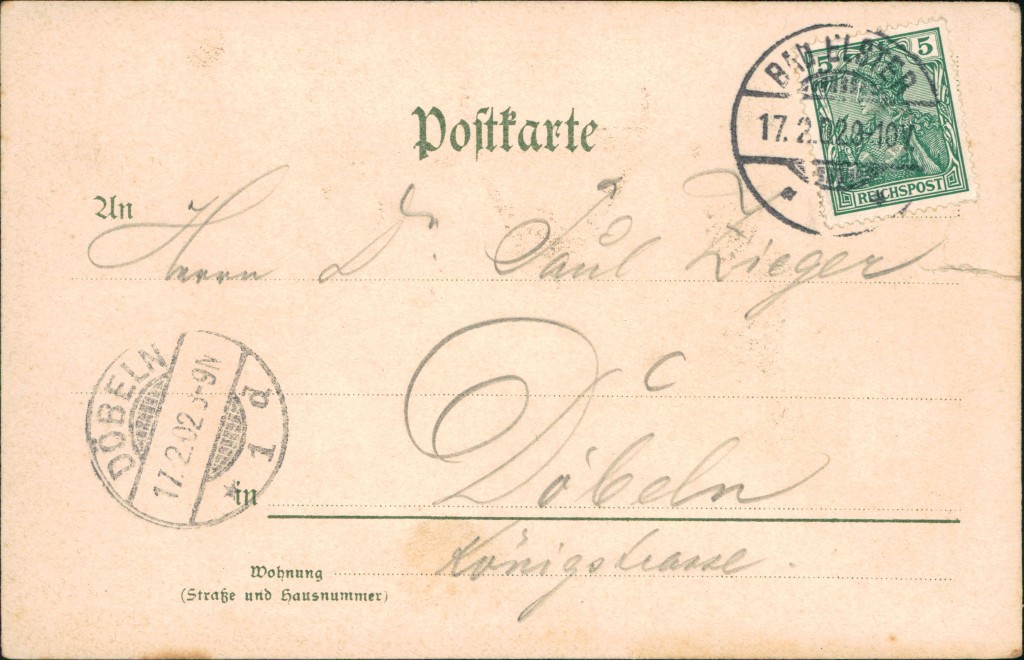 BAD ELSTER
17. 2. 02. 9-10V.
5 5
REICHSPOST
Postkarte
An
Herrn Dr. Paul Zieger
DÖBELN
17.2.02.3-9N
* 1 d
in Döbeln
Königstrasse.
Wohnung
(Straße und Hausnummer)